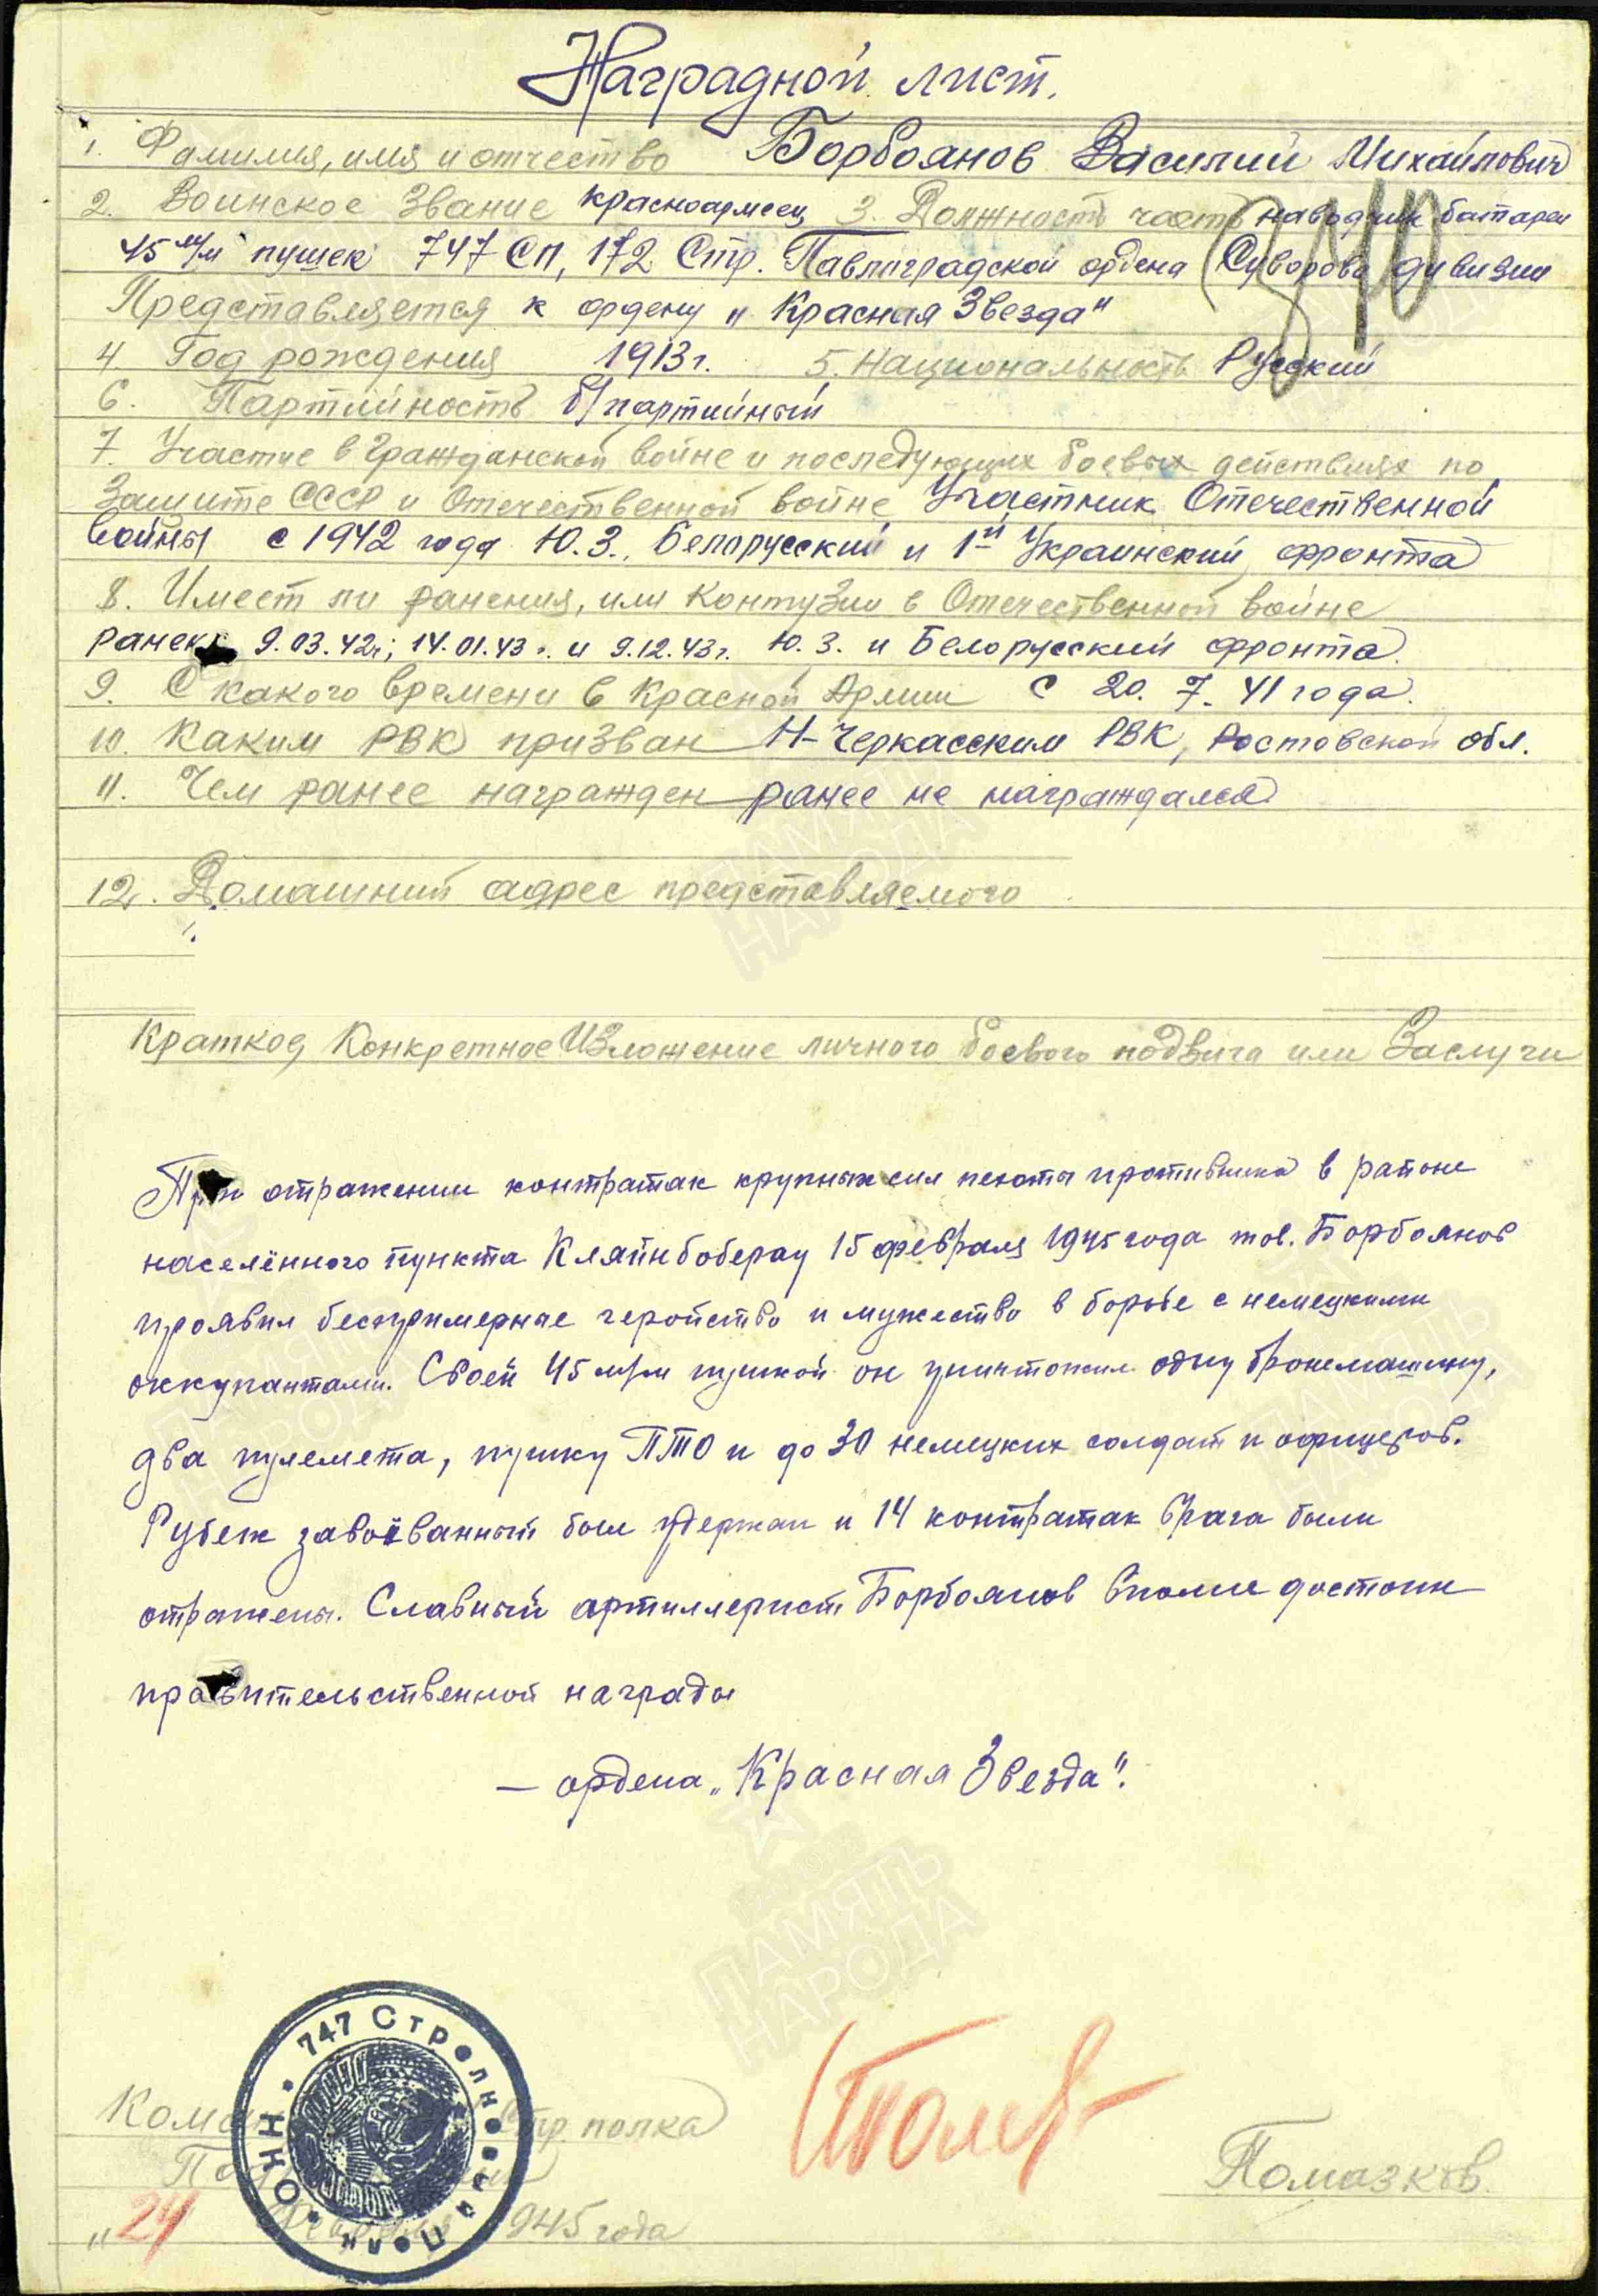 Наградной лист.
1. Фамилия, имя и отчество Борбоянов Василий Михайлович
2. Воинское звание красноармеец 3. Должность часть наводчик батареи
45 м/м пушек 747 СП, 172 Стр. Павлоградской ордена Суворова дивизии
Представляется к ордену „Красная Звезда"
4. Год рождения 1913 г. 5. Национальность Русский
6. Партийность б/партийный
7. Участие в гражданской войне и последующих боевых действиях по
защите СССР и Отечественной войне Участник Отечественной
войны с 1942 года Ю.З., Белорусский и 1й Украинский фронта
8. Имеет ли ранения, или контузии в Отечественной войне
ранен 9.03.42г; 14.01.43 г. и 9.12.43г. Ю.З. и Белорусский фронта.
9. С какого времени в Красной Армии С 20.7.41 года.
10. Каким РВК призван Н-Черкасским РВК, Ростовской обл.
11. Чем ранее награжден ранее не награждался
12. Домашний адрес представляемого
Краткое, Конкретное Изложение личного боевого подвига или Заслуги
При отражении контратак крупных сил пехоты противника в районе
населённого пункта Кляйнбоберау 15 февраля 1945 года тов. Борбоянов
проявил беспримерное геройство и мужество в борьбе с немецкими
оккупантами. Своей 45 м/м пушкой он уничтожил одну бронемашину,
два пулемета, пушку ПТО и до 30 немецких солдат и офицеров.
Рубеж завоёванный был удержан и 14 контратак врага были
отражены. Славный артиллерист Борбоянов вполне достоин
правительственной награды
— ордена „Красная Звезда".
747 Стрелковый Полк НКО
Стр. полка
Помазков.
„24 Февраля 1945 года
ПАМЯТЬ НАРОДА